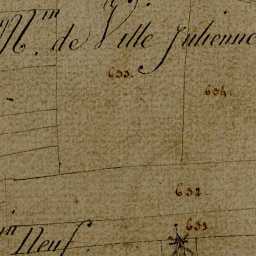 Mⁱⁿ. de Ville Julienne
633.
634.
632
631
Neuf